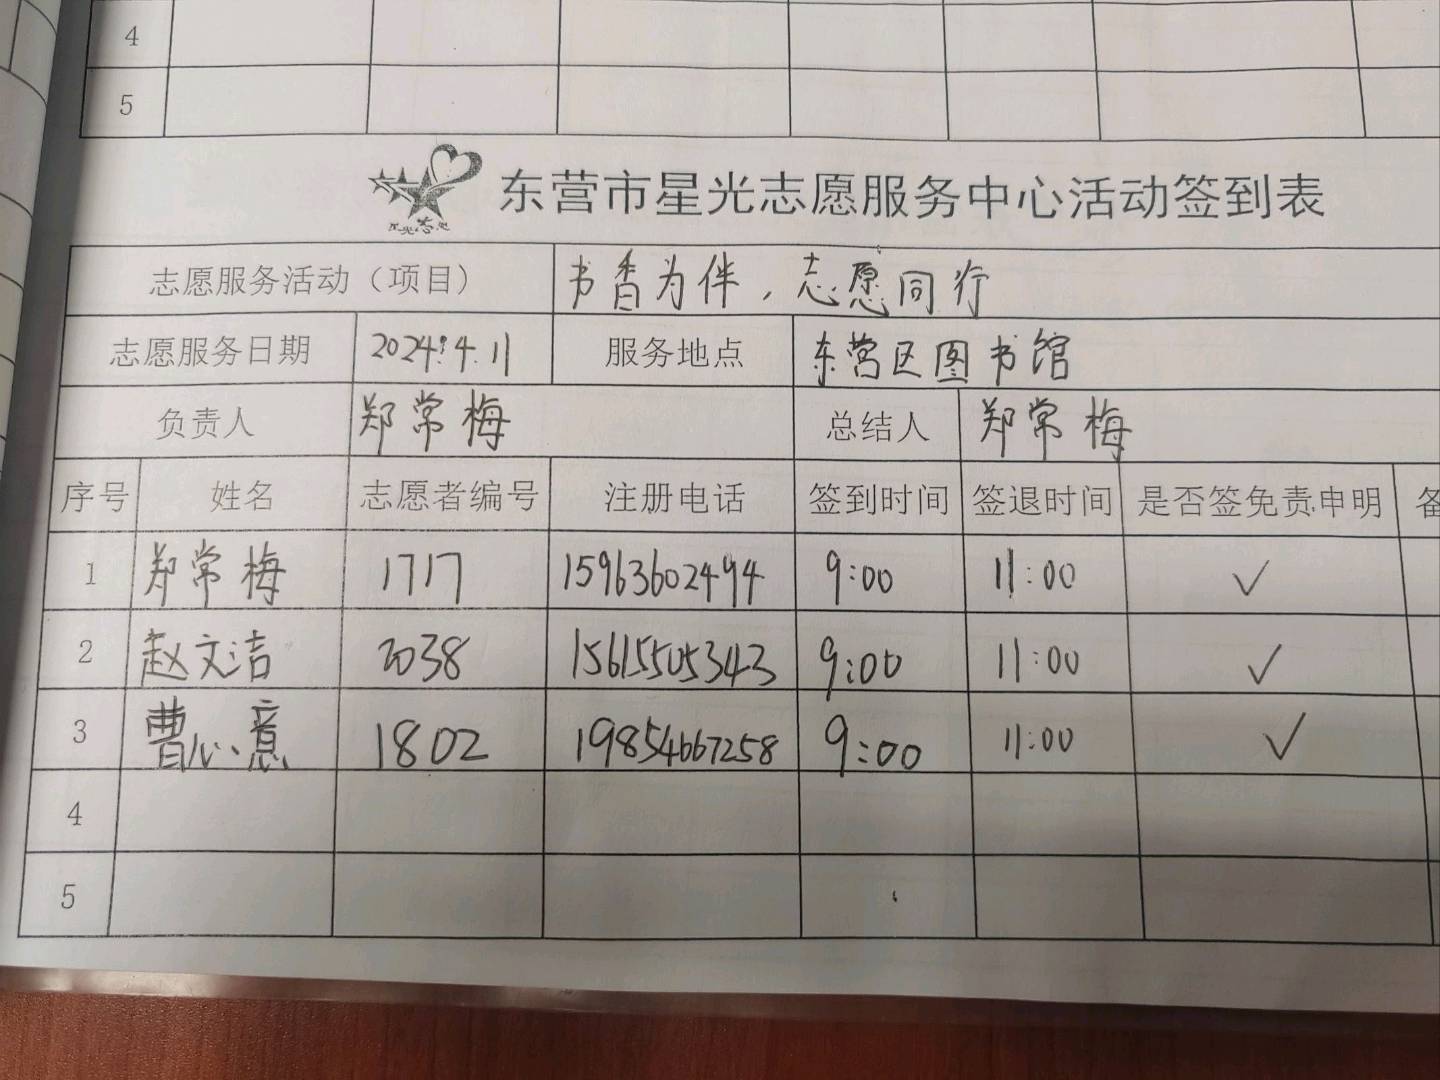 4
5
东营市星光志愿服务中心活动签到表
志愿服务活动（项目） 书香为伴，志愿同行
志愿服务日期 2024.4.11 服务地点 东营区图书馆
负责人 郑常梅 总结人 郑常梅
序号 姓名 志愿者编号 注册电话 签到时间 签退时间 是否签免责申明
1 郑常梅 1717 15963602494 9:00 11:00 ✓
2 赵文洁 2038 15615505343 9:00 11:00 ✓
3 曹心意 1802 19854667258 9:00 11:00 ✓
4
5